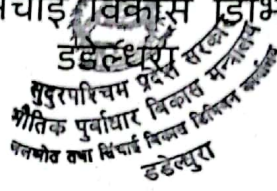 चाई विकास डिभ
डडेल्धुरा
सुदुरपश्चिम प्रदेश सरकार
भौतिक पुर्वाधार विकास मन्त्रालय
जलस्रोत तथा सिंचाई विकास डिभिजन कार्यालय
डडेल्धुरा